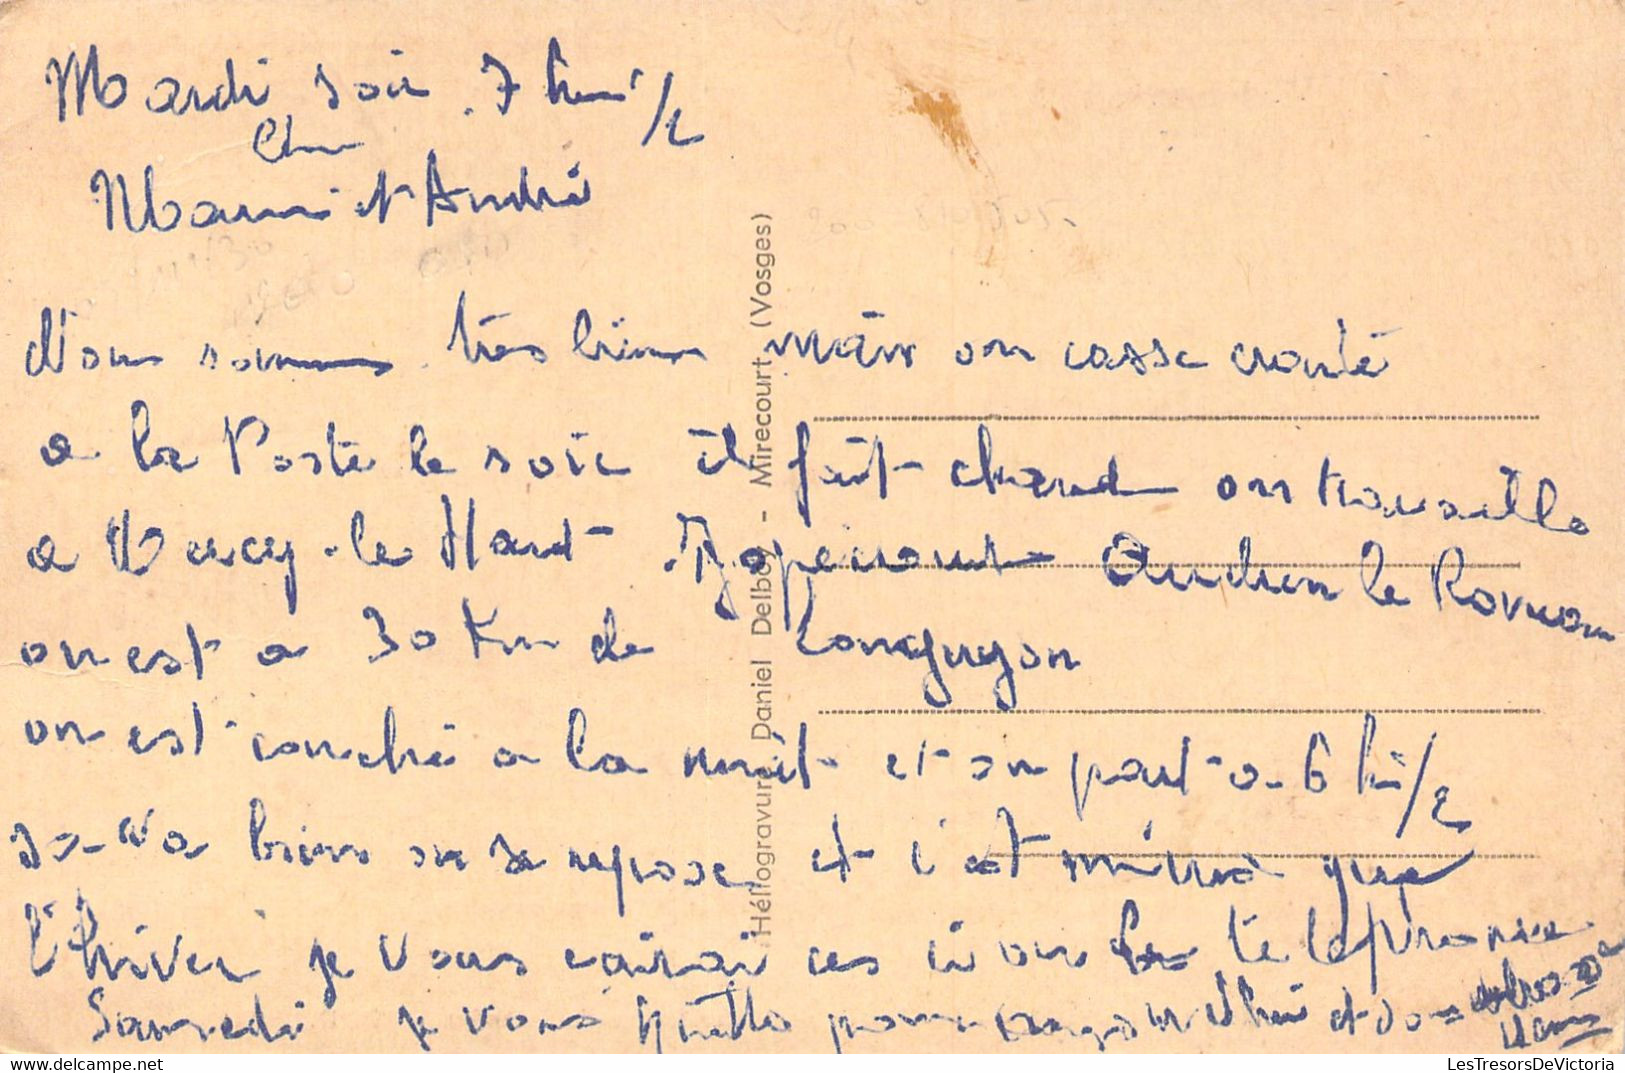 Mardi soir 7 heu 1/2
Cher
Mami et André
Nous sommes très bien mais on casse crouté
a la Poste le soir il fait chaud on travaille
a Mercy-le Haut. Bopecourt Audun le Roman
on est a 30 Km de Longuyon
on est couché a la nuit et on part a 6 h 1/2
sa va bien on se repose et c'est mieux que
l'hiver je vous ecirai ces ci on telephone
Samedi je vous quitte pour
Héliogravure Daniel Delboy - Mirecourt (Vosges)
LesTresorsDeVictoria.com